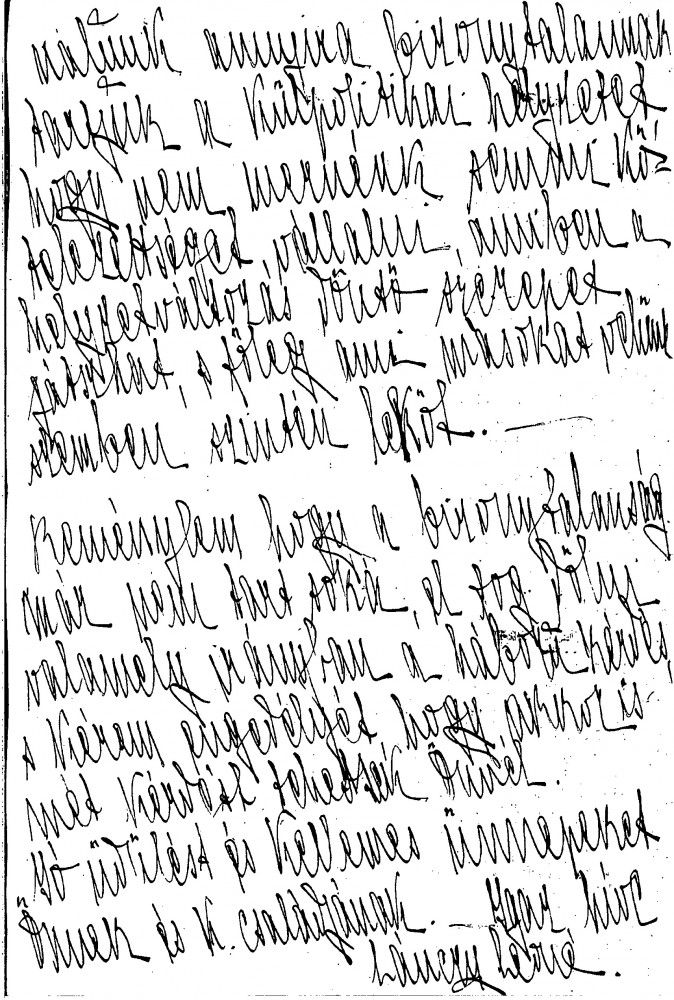 nálunk annyira bizonytalannak
tartjuk a külpolitikai helyzetet
hogy nem mernénk semmi kö-
telezettséget vállalni, amiben a
helyzetváltozás döntő szerepet
játszhat, s főleg ami másokat velünk
szemben szintén leköt. —
Reménylem hogy a bizonytalanság
már nem tart soká, el fog dőlni
valamely irányban a háború kérdés,
s kérem engedélyét hogy akkor is-
mét kérdést tehessek Önnél.
Jó üdülést és kellemes ünnepeket
Önnek és k. családjának. — Igaz híve
Lánczy Leóné.